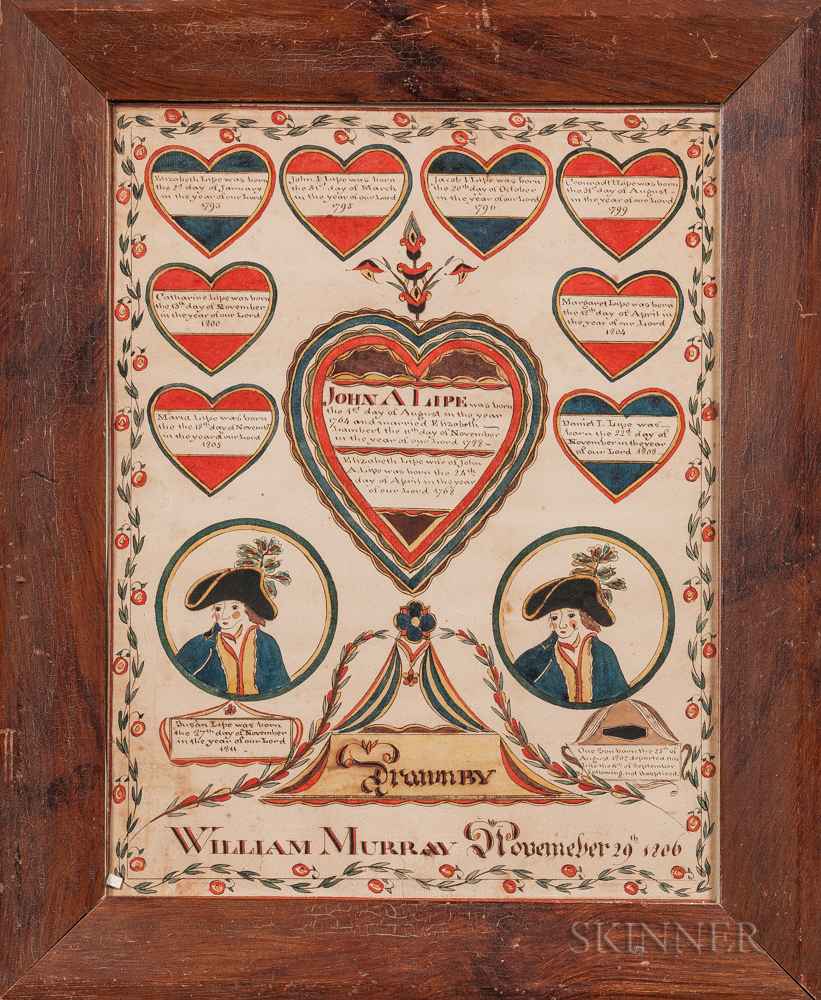 Elizabeth Lipe was born
the 2d day of January
in the year of our Lord
1793
John I Lipe was born
the 31st day of March
in the year of our Lord
1795
Jacob I Lipe was born
the 20th day of October
in the year of our Lord
1796
Coonradt I Lipe was born
the 31st day of August
in the year of our Lord
1799
Catharine Lipe was born
the 13th day of November
in the year of our Lord
1800
Margaret Lipe was born
the 12th day of April in
the year of our Lord
1804
JOHN A LIPE was born
the 1st day of August in the year
1764 and married Elizabeth
Lambert the 11th day of November
in the year of our Lord 1788
Elizabeth Lipe wife of John
A Lipe was born the 24th
day of April in the year
of our Lord 1768
Maria Lipe was born
the the 18th day of Novemb
in the year of our Lord
1805
Daniel I. Lipe was
born the 22d day of
November in the year
of our Lord 1808
Susan Lipe was born
the 27th day of November
in the year of our Lord
1811
One Son born the 25th of
August 1802 departed this
life the 6th of September
following not Baptised
Drawn BY
WILLIAM MURRAY Novemeber 29th 1806
SKINNER